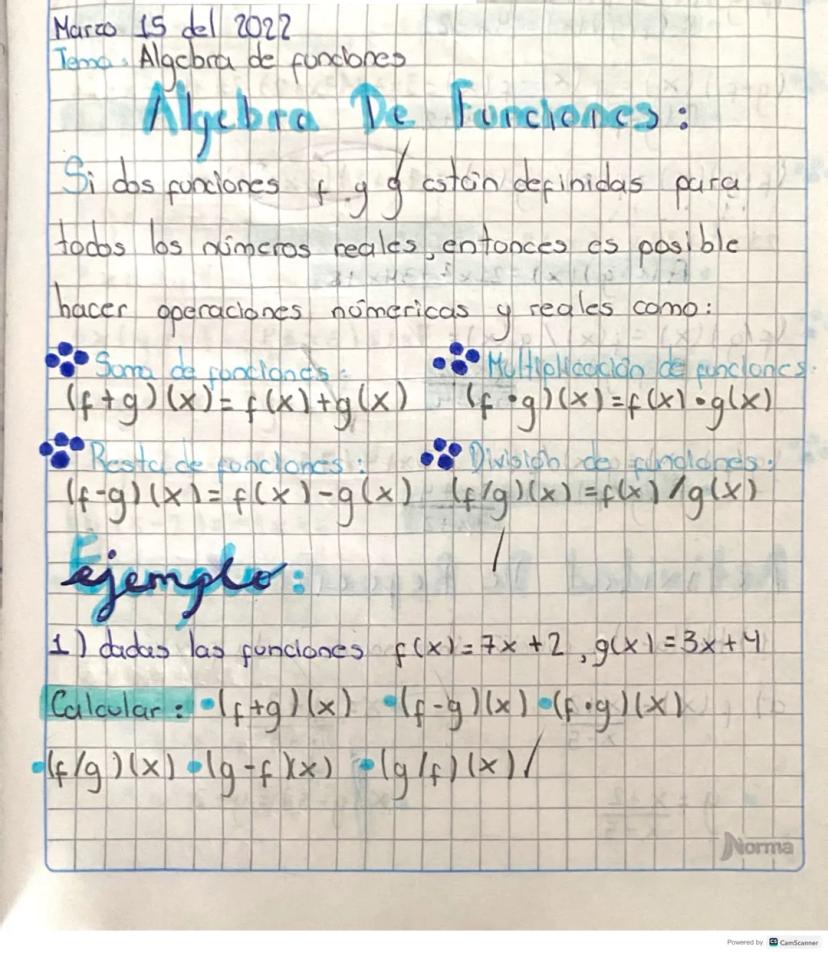 Marzo 15 del 2022
Tema: Algebra de funciones
Algebra De Funciones:
Si dos funciones f y g están definidas para
todos los números reales, entonces es posible
hacer operaciones númericas y reales como:
Suma de funciones: Multiplicación de funciones:
(f+g)(x)= f(x)+g(x) (f•g)(x)=f(x)•g(x)
Resta de funciones: División de funciones:
(f-g)(x)= f(x)-g(x) (f/g)(x)=f(x)/g(x)
Ejemplo:
1) dadas las funciones f(x)=7x+2, g(x)=3x+4
Calcular: •(f+g)(x) •(f-g)(x) •(f•g)(x)
•(f/g)(x) •(g-f)(x) •(g/f)(x)/
Norma
Powered by CS CamScanner